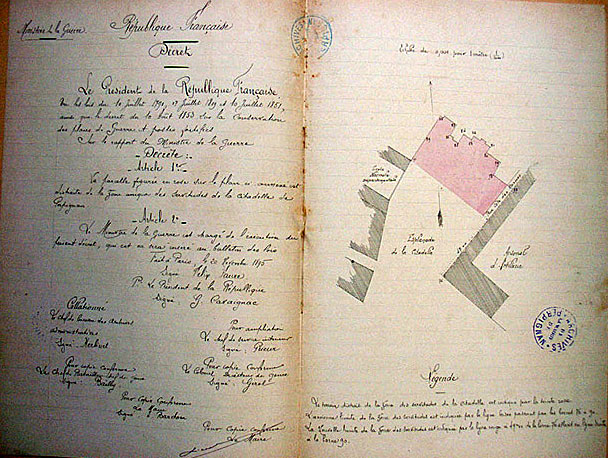 Ministère de la Guerre
République Française
Décret
Le Président de la République Française
Vu les lois du 10 Juillet 1791, 17 Juillet 1819 et 10 Juillet 1851,
ainsi que le décret du 10 Août 1853 sur la Conservation
des places de Guerre et postes fortifiés
Sur le rapport du Ministre de la Guerre
- Décrète -
- Article 1er -
La parcelle figurée en rose sur le plan ci annexé est
distraite de la zone unique des servitudes de la citadelle de
Perpignan
- Article 2e -
Le Ministre de la Guerre est chargé de l'exécution du
présent décret, qui sera inséré au bulletin des lois
Fait à Paris, le 20 Novembre 1895
Signé Félix Faure
Pr le Président de la République
Signé: G. Cavaignac
Collationné
Le chef du bureau des archives
administratives
Signé:
Pour ampliation
Le chef du service intérieur
Signé:
Pour copie conforme
Le chef de Bataillon chef du génie
Signé: Bailly
Pour copie conforme
Le Colonel Directeur du génie
Signé:
Pour copie conforme
Le Maire
Signé: Bardou
Pour copie conforme
Le Maire
Echelle de pour mètre
Ecole
Normale
Esplanade
de la Citadelle
Arsenal
d'Artillerie
ARCHIVES
PERPIGNAN
Légende
Le terrain distrait de la Zone des servitudes de la citadelle est indiqué par la teinte rose
L'ancienne limite de la Zone des servitudes est indiquée par la ligne passant par les bornes
La nouvelle limite de la Zone des servitudes est indiquée par la ligne rouge
à la borne 90.